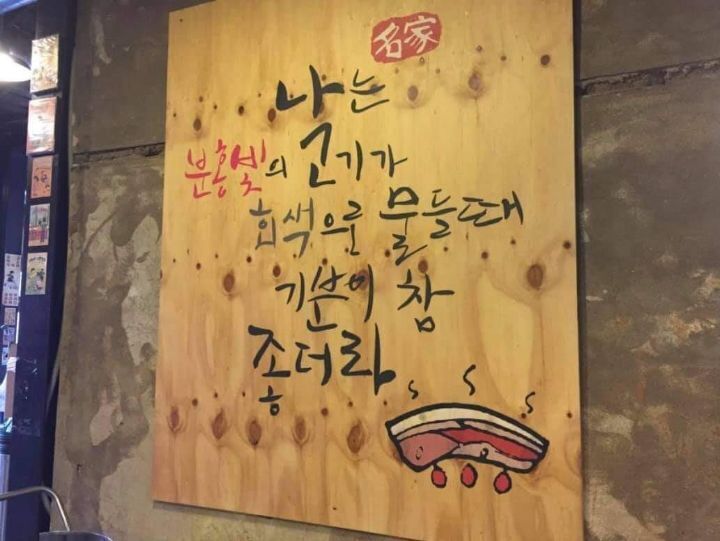 名家
나는
분홍빛의 고기가
회색으로 물들때
기분이 참
좋더라